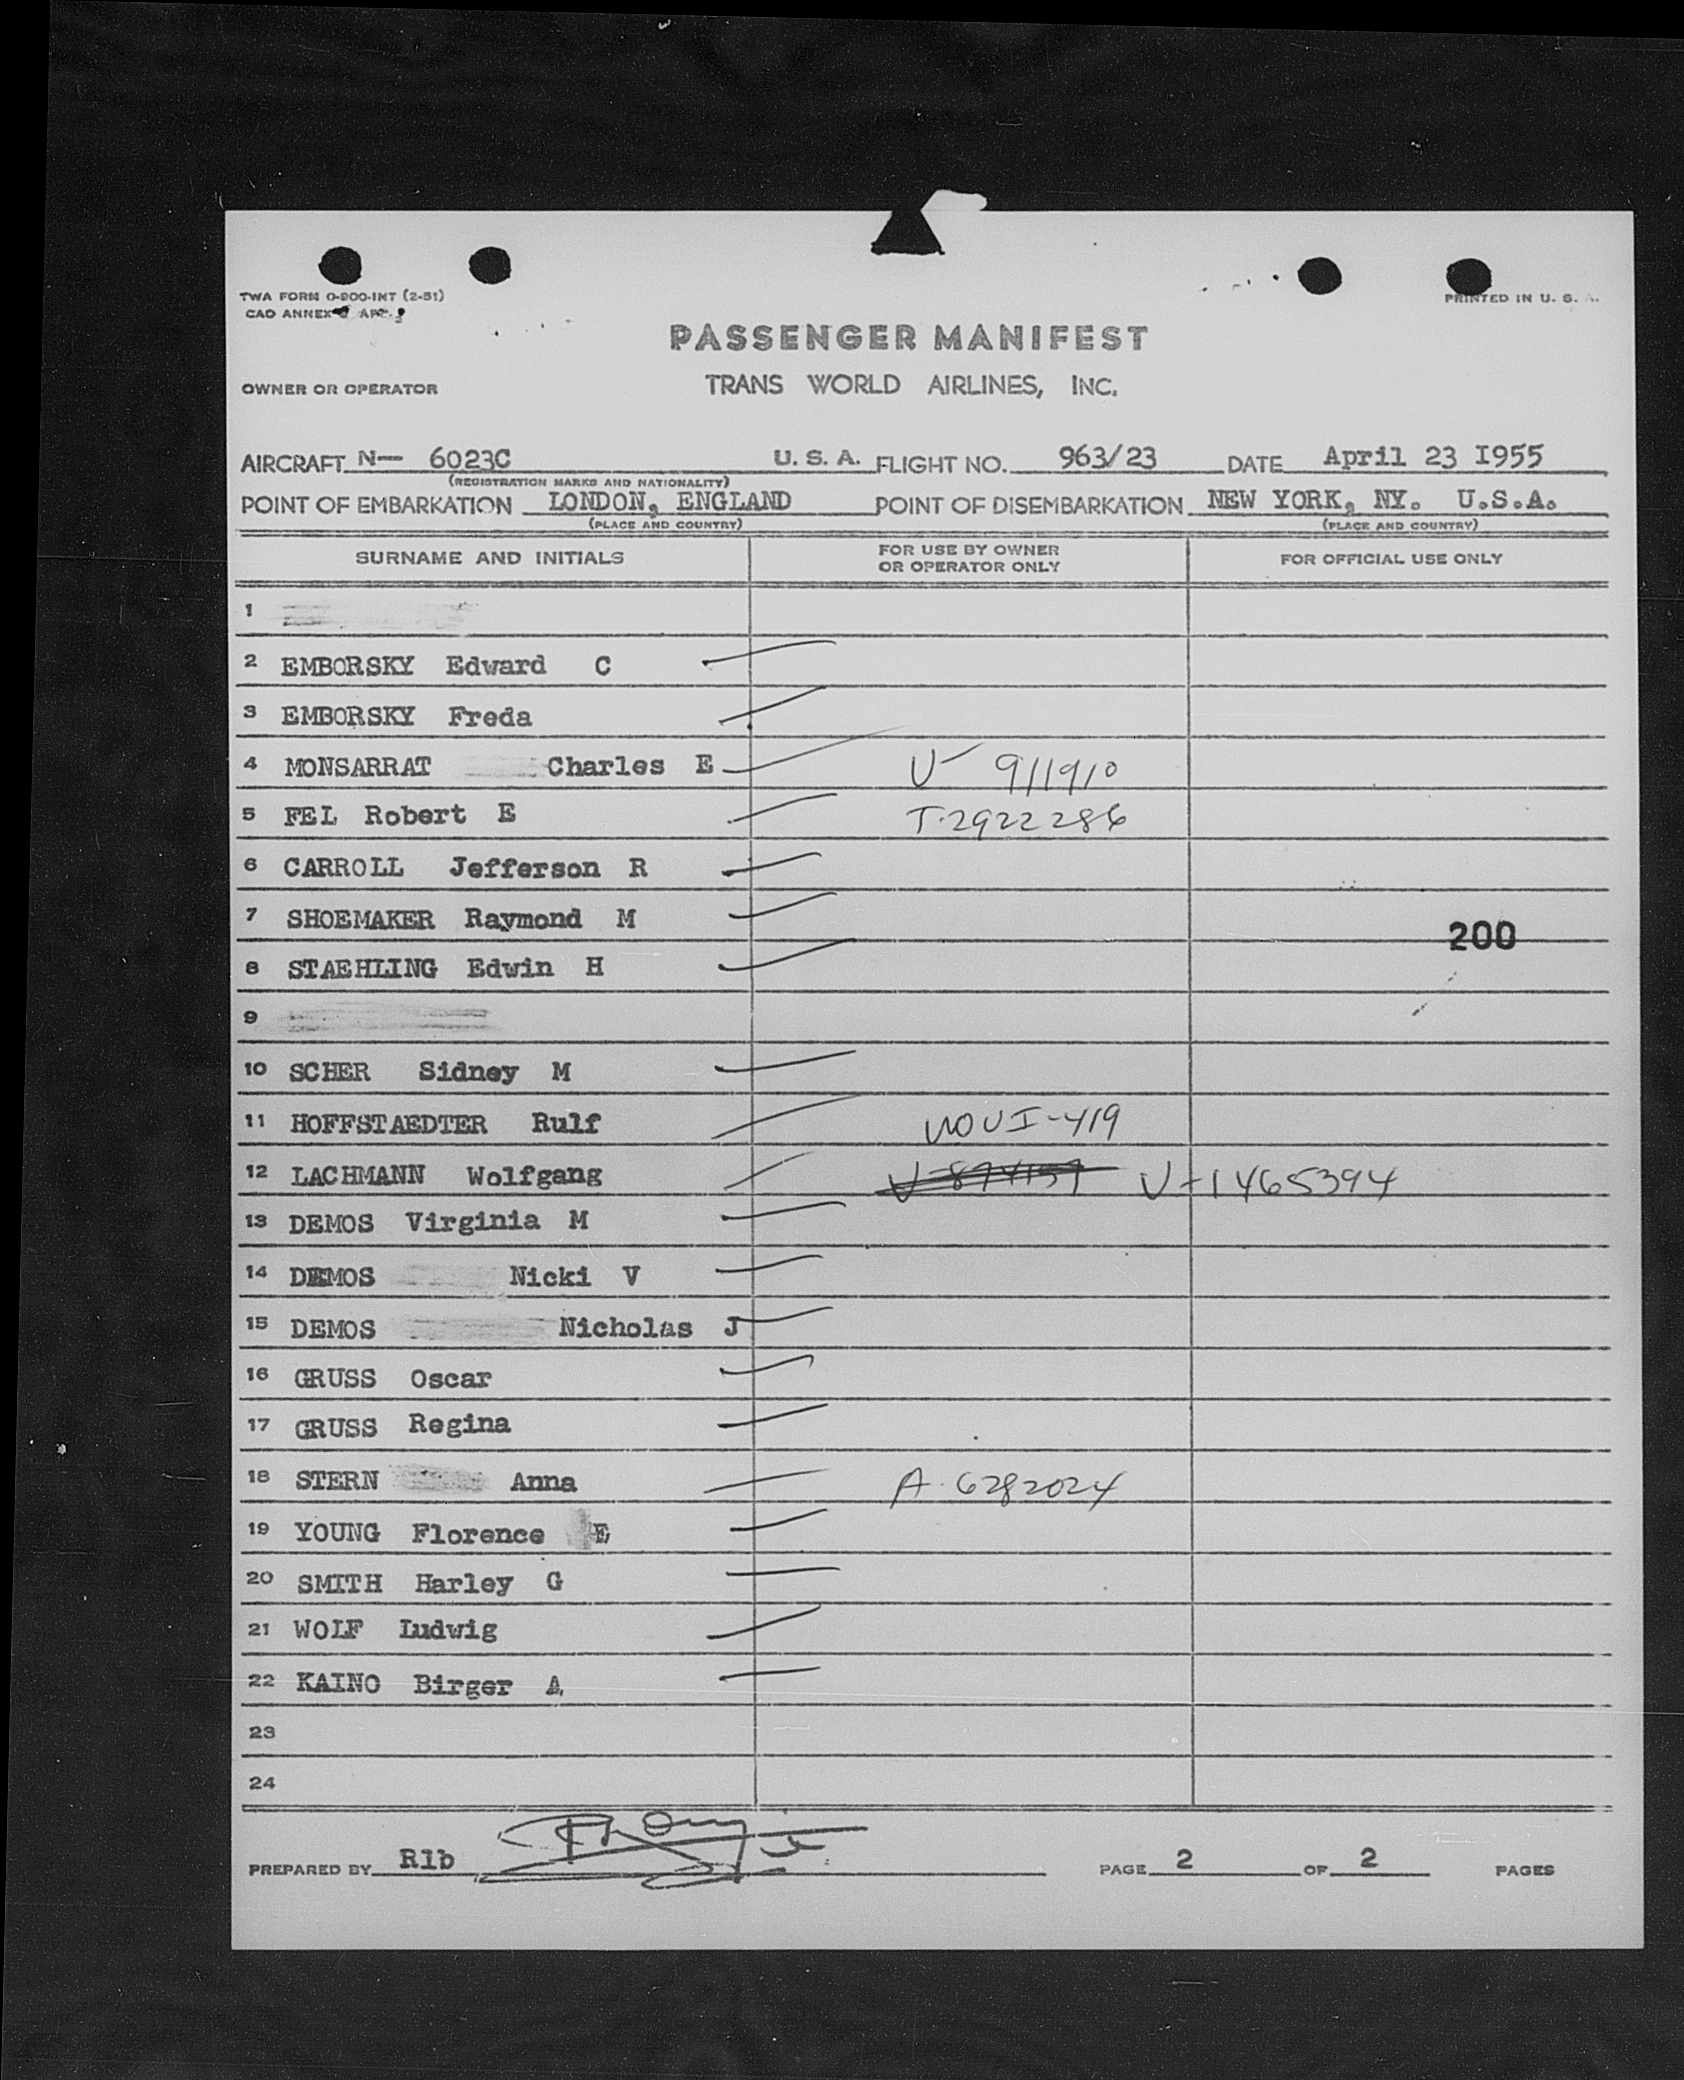 TWA FORM O-900-INT (2-51)
CAO ANNEX
PRINTED IN U. S. A.
PASSENGER MANIFEST
OWNER OR OPERATOR TRANS WORLD AIRLINES, INC.
AIRCRAFT N— 6023C U. S. A. FLIGHT NO. 963/23 DATE April 23 I955
(REGISTRATION MARKS AND NATIONALITY)
POINT OF EMBARKATION LONDON, ENGLAND POINT OF DISEMBARKATION NEW YORK, NY. U.S.A.
(PLACE AND COUNTRY) (PLACE AND COUNTRY)
SURNAME AND INITIALS FOR USE BY OWNER OR OPERATOR ONLY FOR OFFICIAL USE ONLY
1
2 EMBORSKY Edward C
3 EMBORSKY Freda
4 MONSARRAT Charles E V- 911910
5 FEL Robert E T-2922286
6 CARROLL Jefferson R
7 SHOEMAKER Raymond M
200
8 STAEHLING Edwin H
9
10 SCHER Sidney M
11 HOFFSTAEDTER Rulf I-419
12 LACHMANN Wolfgang V-1465394
13 DEMOS Virginia M
14 DEMOS Nicki V
15 DEMOS Nicholas J
16 GRUSS Oscar
17 GRUSS Regina
18 STERN Anna A-6282024
19 YOUNG Florence E
20 SMITH Harley G
21 WOLF Ludwig
22 KAINO Birger A
23
24
PREPARED BY Rlb PAGE 2 OF 2 PAGES